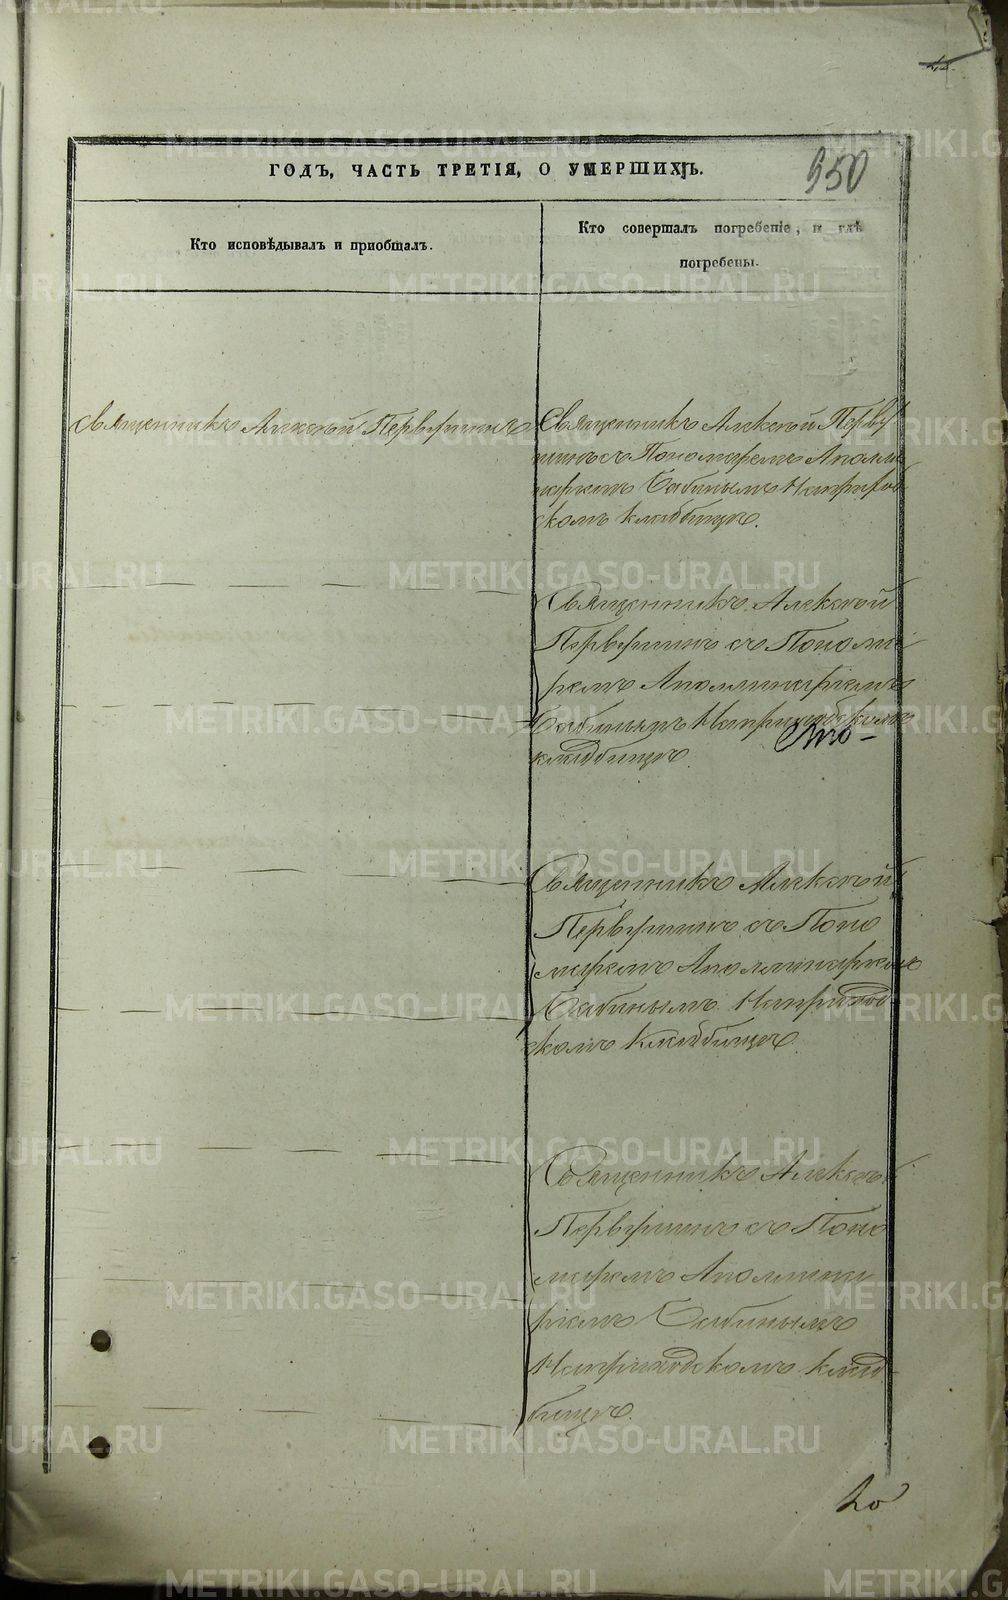 ГОДЪ, ЧАСТЬ ТРЕТІЯ, О УМЕРШИХЪ.
950
Кто исповѣдывалъ и пріобщалъ.
Кто совершалъ погребеніе, и гдѣ
погребены.
Священникъ Алексѣй Первушинъ
Священникъ Алексѣй Перву
шинъ съ Пономаремъ Аполли
наріемъ Бабинымъ На приход
скомъ кладбищѣ.
Священникъ Алексѣй
Первушинъ съ Понома
ремъ Аполлинаріемъ
Бабинымъ На приходскомъ
кладбищѣ.
Священникъ Алексѣй
Первушинъ съ Поно
маремъ Аполлинаріемъ
Бабинымъ На приход
скомъ кладбищѣ.
Священникъ Алексѣй
Первушинъ съ Поно
маремъ Аполлина
ріемъ Бабинымъ
На приходскомъ клад-
бищѣ.
METRIKI.GASO-URAL.RU